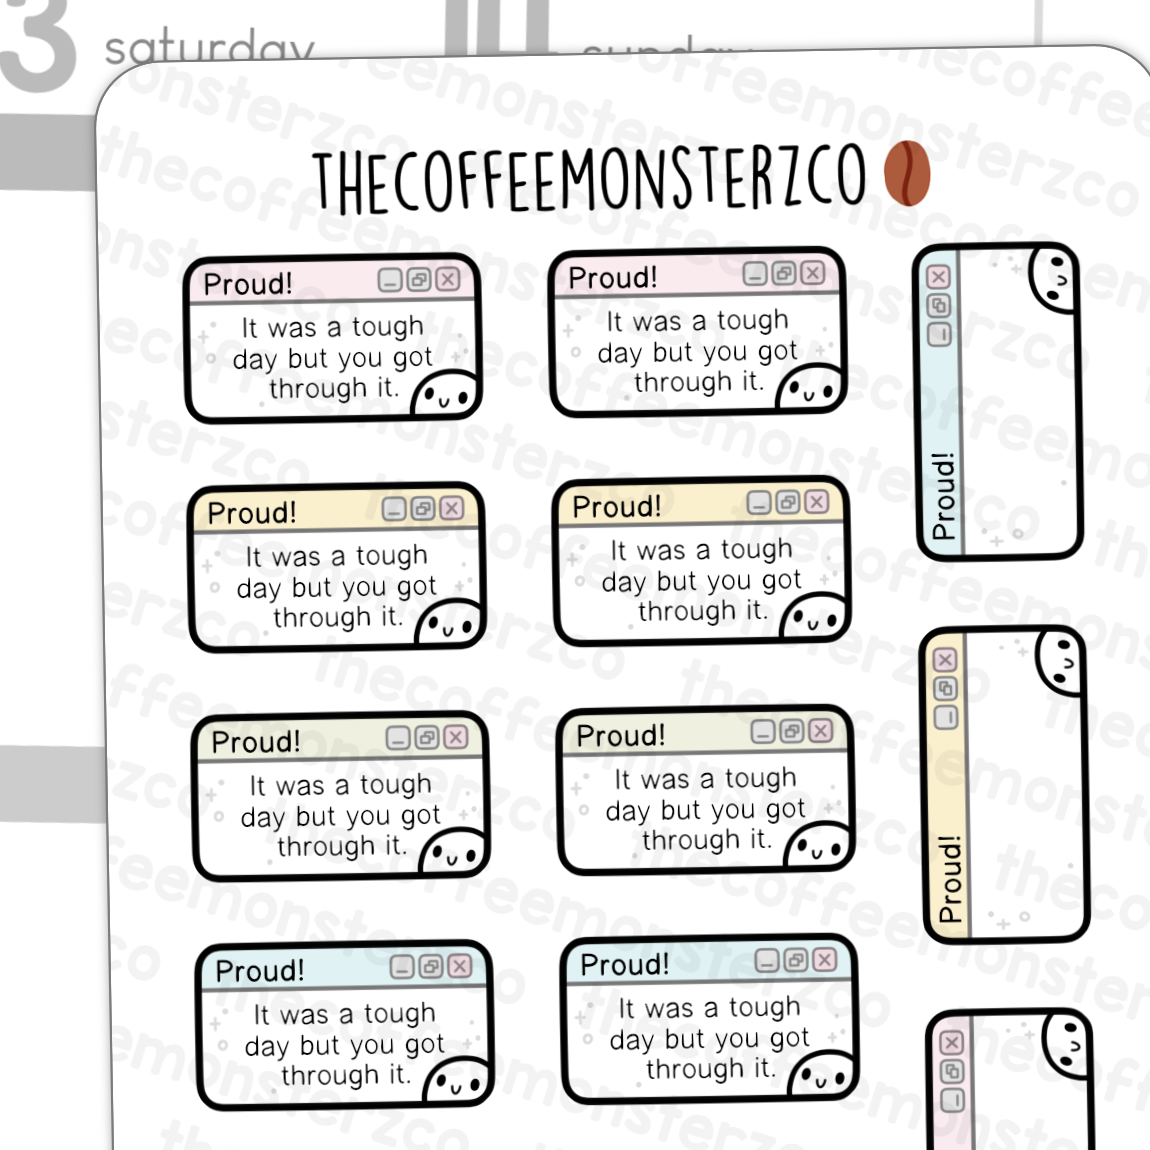 3 saturday 14 sunday
THECOFFEEMONSTERZCO
Proud!
It was a tough
day but you got
through it.
Proud!
It was a tough
day but you got
through it.
Proud!
Proud!
It was a tough
day but you got
through it.
Proud!
It was a tough
day but you got
through it.
Proud!
Proud!
It was a tough
day but you got
through it.
Proud!
It was a tough
day but you got
through it.
Proud!
It was a tough
day but you got
through it.
Proud!
It was a tough
day but you got
through it.
thecoffeemonsterzco